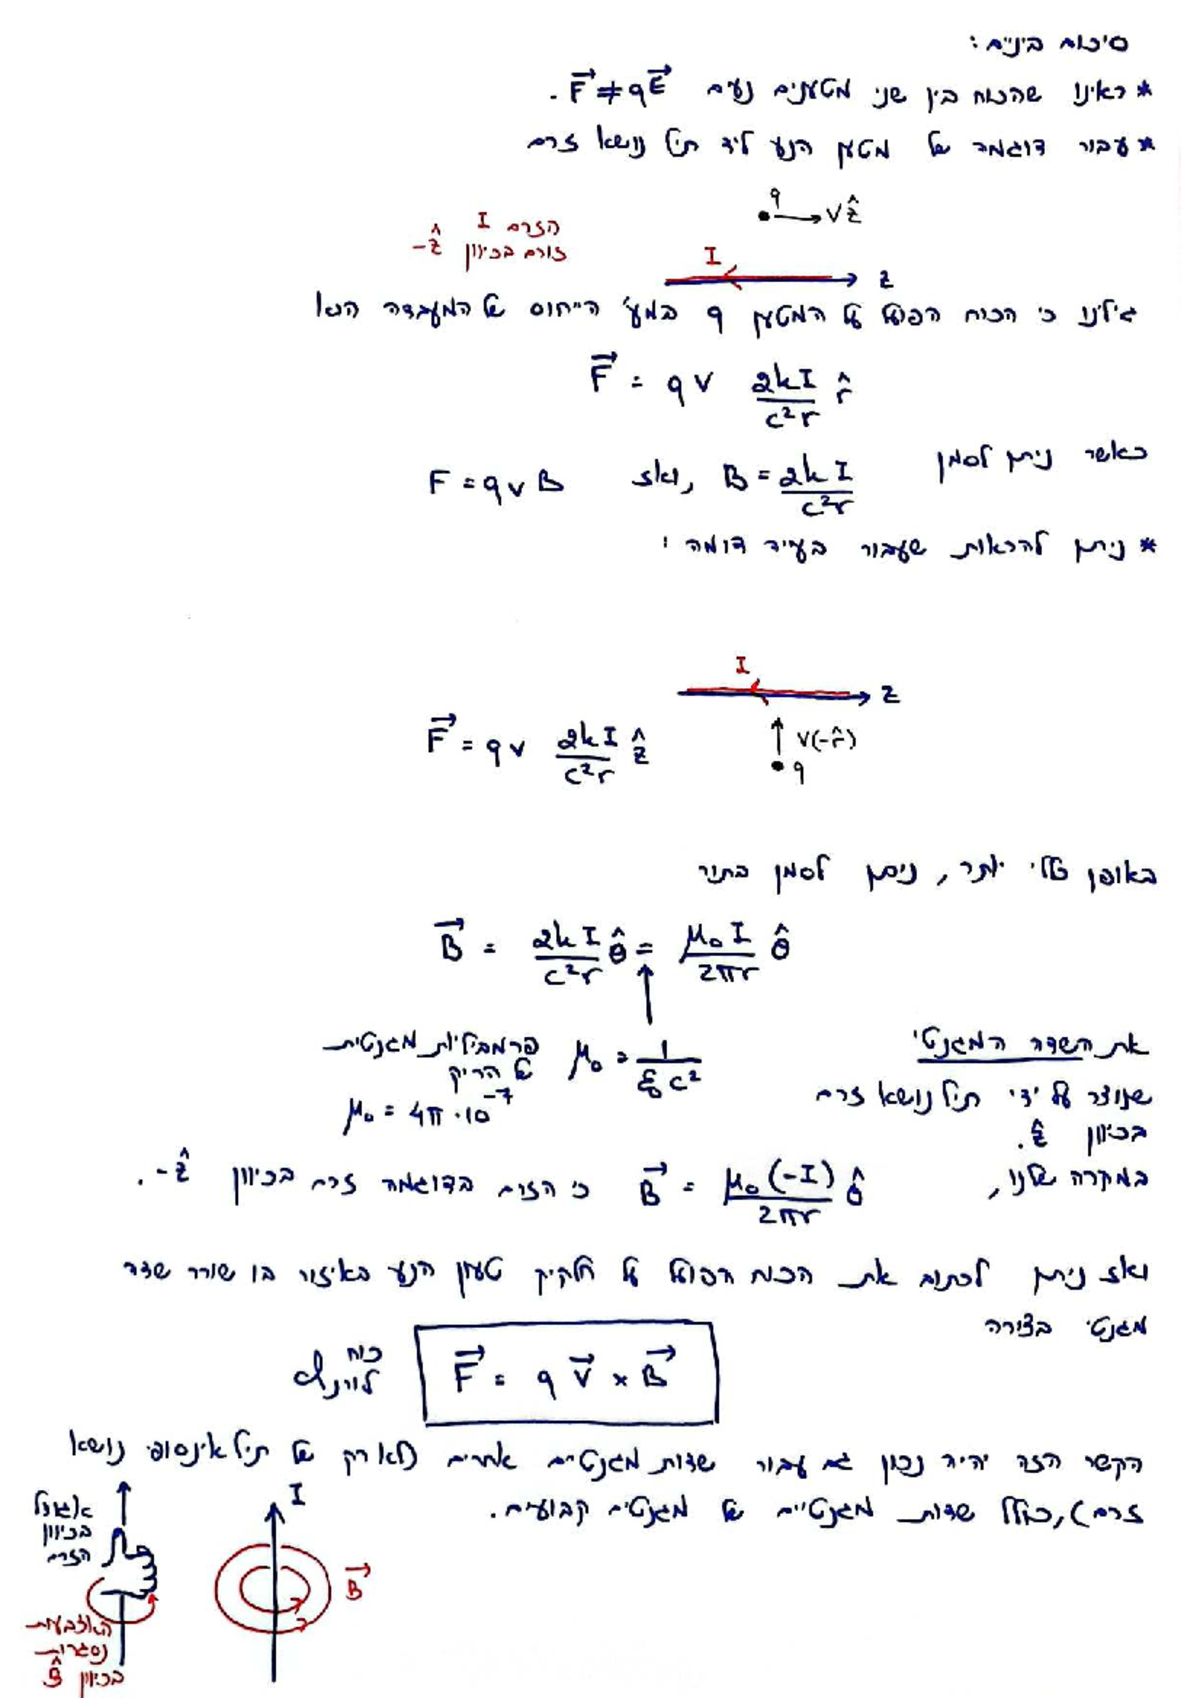 סיכום ביניים:
* ראינו שהכוח בין שני מטענים נעים F⃗ ≠ qE⃗.
* עבור דוגמה של מטען הנע ליד תיל נושא זרם
q
Vẑ
הזרם I
זורם בכיוון -ẑ
I
z
גילינו כי הכוח הפועל על המטען q במע' הייחוס של המעבדה הוא
F⃗ = qV 2kI/c²r r̂
כאשר ניתן לסמן B = 2kI/c²r, ואז F = qvB
* ניתן להראות שעבור בעיה דומה:
I
z
V(-r̂)
q
F⃗ = qv 2kI/c²r ẑ
באופן כללי יותר, ניתן לסמן בתור
B⃗ = 2kI/c²r θ̂ = μ₀I/2πr θ̂
את השדה המגנטי
שנוצר על ידי תיל נושא זרם
בכיוון ẑ.
μ₀ = 1/ε₀c²
פרמביליות מגנטית
של הריק
μ₀ = 4π·10⁻⁷
במקרה שלנו, B⃗ = μ₀(-I)/2πr θ̂ כי הזרם בדוגמה זרם בכיוון -ẑ.
ואז ניתן לכתוב את הכוח הפועל על חלקיק טעון הנע באיזור בו שורר שדה
מגנטי בצורה
F⃗ = qV⃗ × B⃗
כוח
לורנץ
הקשר הזה יהיה נכון גם עבור שדות מגנטיים אחרים (לא רק של תיל אינסופי נושא
זרם), כולל שדות מגנטיים של מגנטים קבועים.
I
B⃗
אגודל
בכיוון
הזרם
האצבעות
נסגרות
בכיוון θ̂